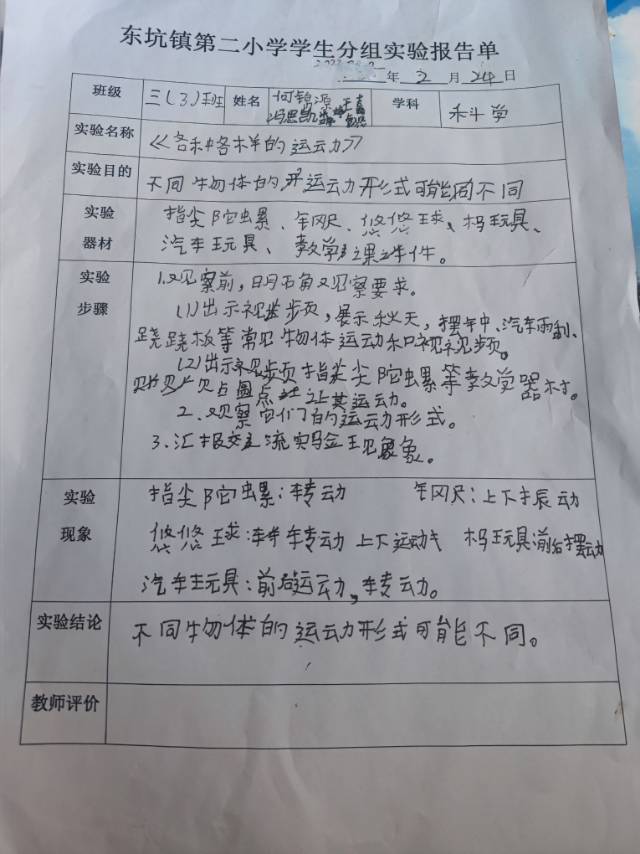 东坑镇第二小学学生分组实验报告单
年 2 月 24 日
班级 三(3)班 姓名 冯思凯 学科 科学
实验名称 《各种各样的运动》
实验目的 不同物体的运动形式可能不同
实验器材 指尖陀螺、钢尺、悠悠球、玛玩具、
汽车玩具、教学课件。
实验步骤 1.观察前,明确观察要求。
(1)出示视频,展示秋天,摆钟、汽车雨刮、
跷跷板等常见物体运动和视频。
(2)出示 指尖陀螺等教学器材。
贴圆点 让其运动。
2.观察它们的运动形式。
3.汇报交流实验现象。
实验现象 指尖陀螺:转动 钢尺:上下振动
悠悠球:转动 上下运动 玛玩具:前后摆动
汽车玩具:前后运动,转动。
实验结论 不同物体的运动形式可能不同。
教师评价